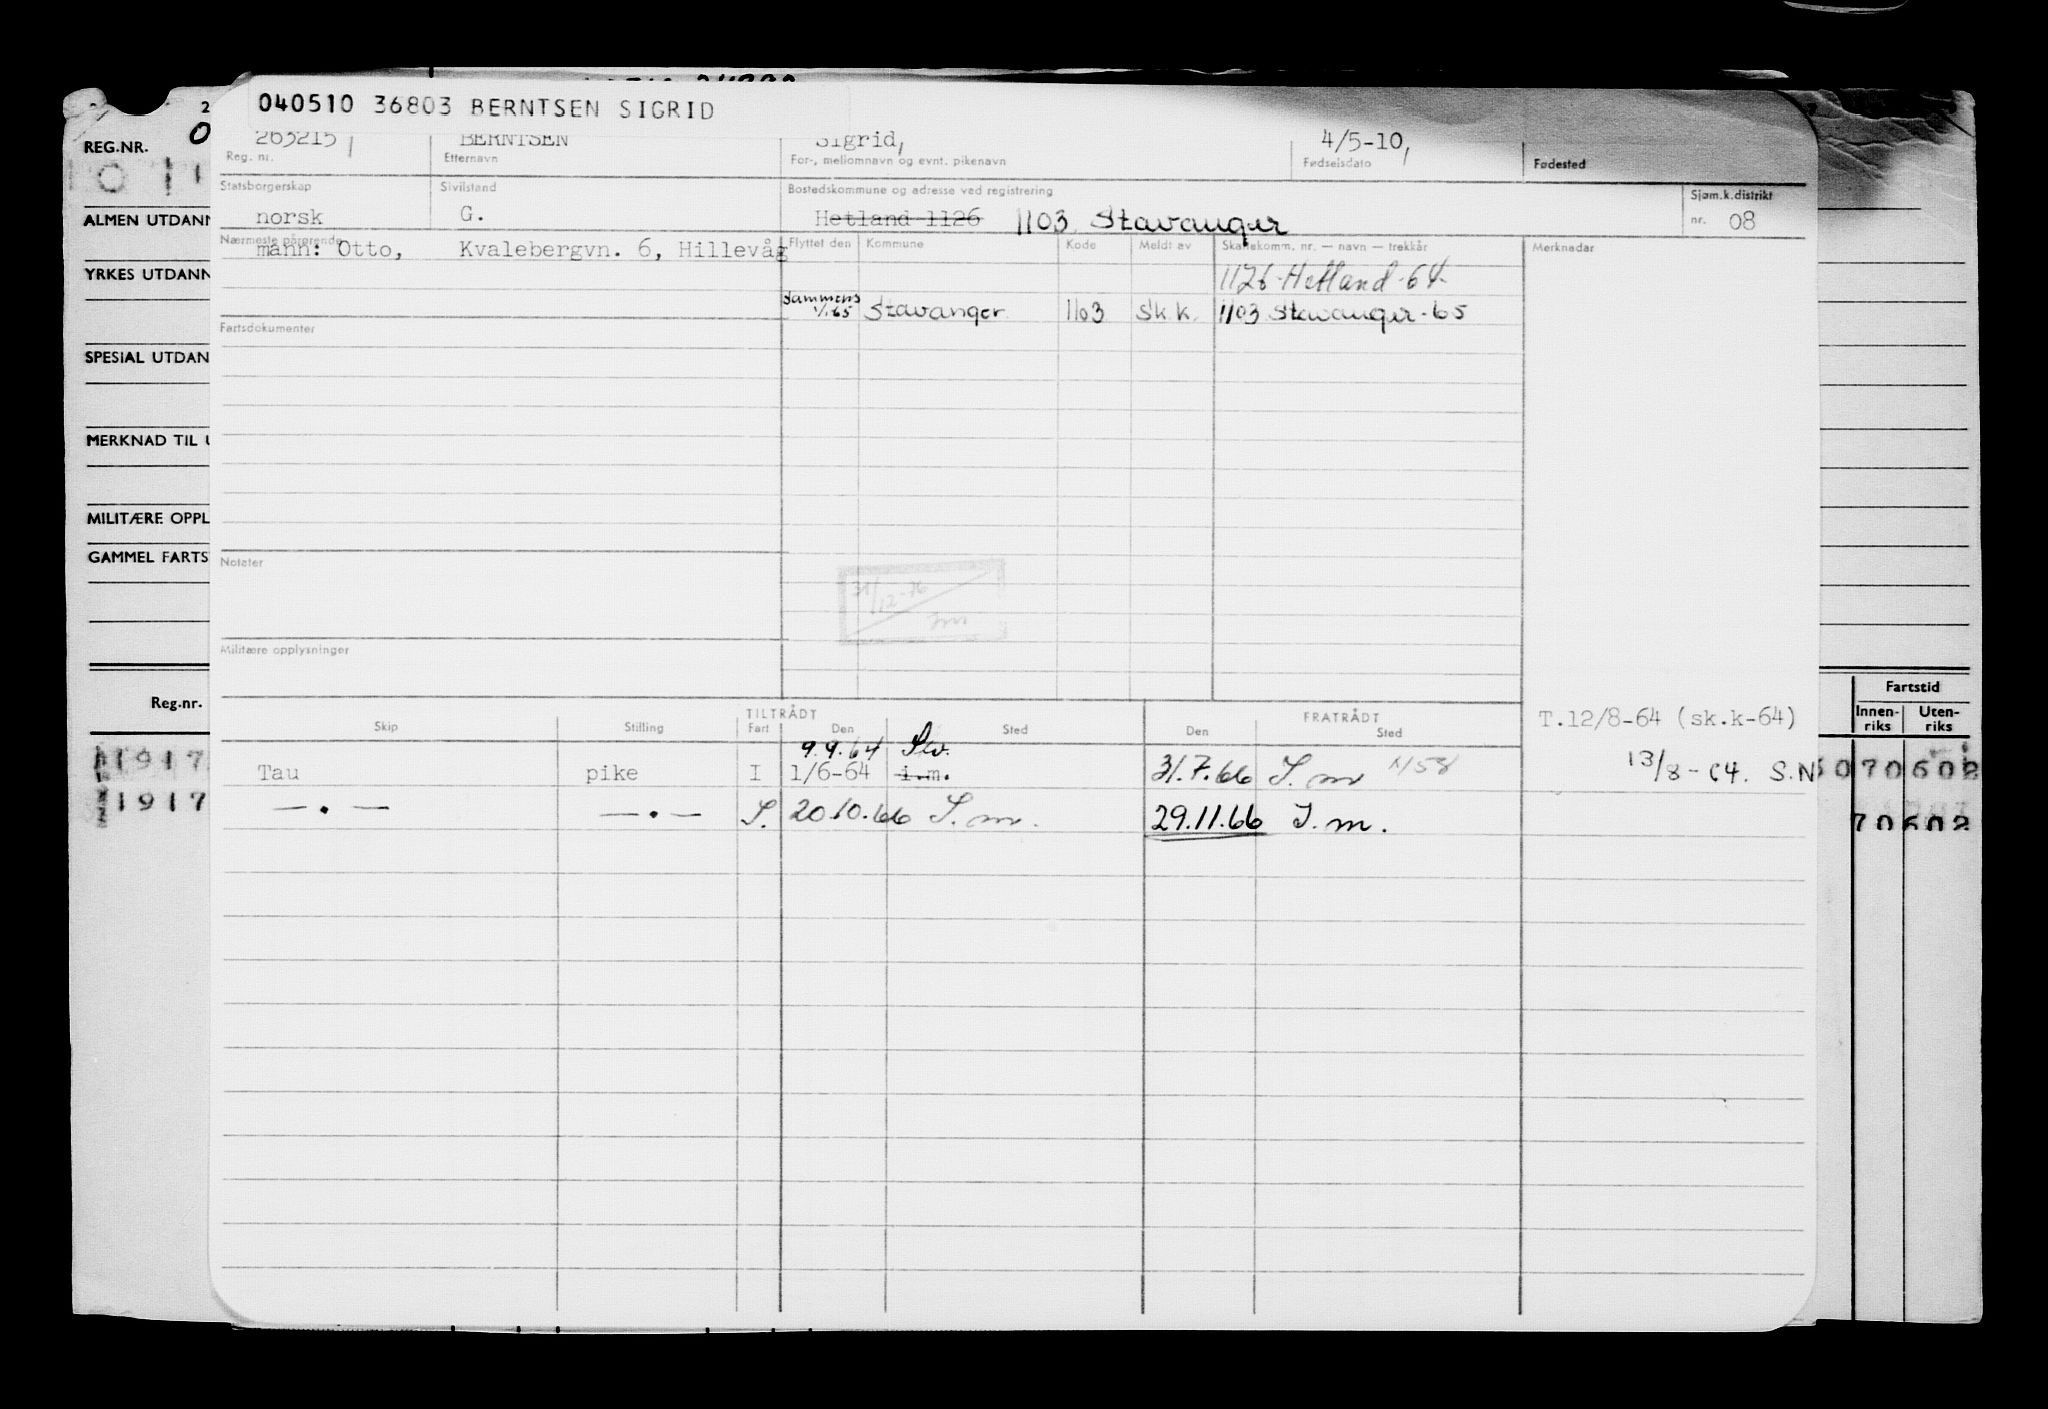 040510 36803 BERNTSEN SIGRID
REG.NR.
263215 BERNTSEN Sigrid, 4/5-10,
Reg. nr. Etternavn For-, mellomnavn og evnt. pikenavn Fødselsdato Fødested
Statsborgerskap Sivilstand Bostedskommune og adresse ved registrering Sjøm.k.distrikt
ALMEN UTDANN
norsk G. Hetland 1126 1103 Stavanger nr. 08
Nærmeste pårørende Flyttet den Kommune Kode Meldt av Skattekomm. nr. — navn — trekkår Merknader
mann: Otto, Kvalebergvn. 6, Hillevåg
YRKES UTDANN
1126-Hetland-64
Sammensl
1/1.65 Stavanger 1103 Sk.k. 1103 Stavanger-65
Fartsdokumenter
SPESIAL UTDAN
MERKNAD TIL U
MILITÆRE OPPL
GAMMEL FARTS
Notater
31/12-76
Militære opplysninger
Reg.nr.
Fartstid
Innen-
riks
Uten-
riks
TILTRÅDT FRATRÅDT
Skip Stilling Fart Den Sted Den Sted
T.12/8-64 (sk.k-64)
9.9.64 Stv.
Tau pike I 1/6-64 i.m. 31.7.66 I.m N58
13/8-64. S.N
1917
70602
— . — — . — I. 20.10.66 I.m. 29.11.66 I.m.
1917
70602